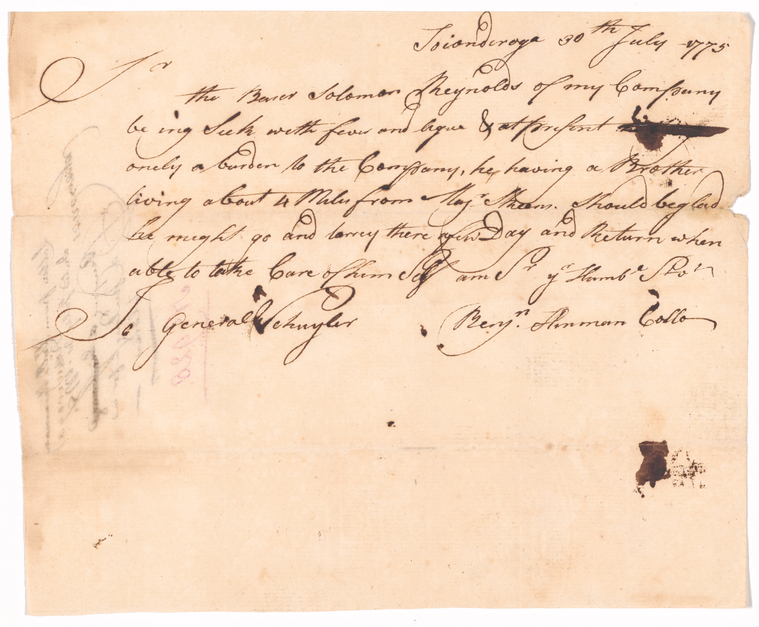 Ticonderoga 30th July 1775
Sr
the Barer Solomon Reynolds of my Company
being Sick with fever and Ague & at present
onely a burden to the Company, he, having a Brother
living about 4 Miles from Majr Skeens. Should be glad
he might go and tarrey there a few Day and Return when
able to take Care of him Self am Sr yr Humbe Servt
To General Schuyler Benjn Hinman Collo